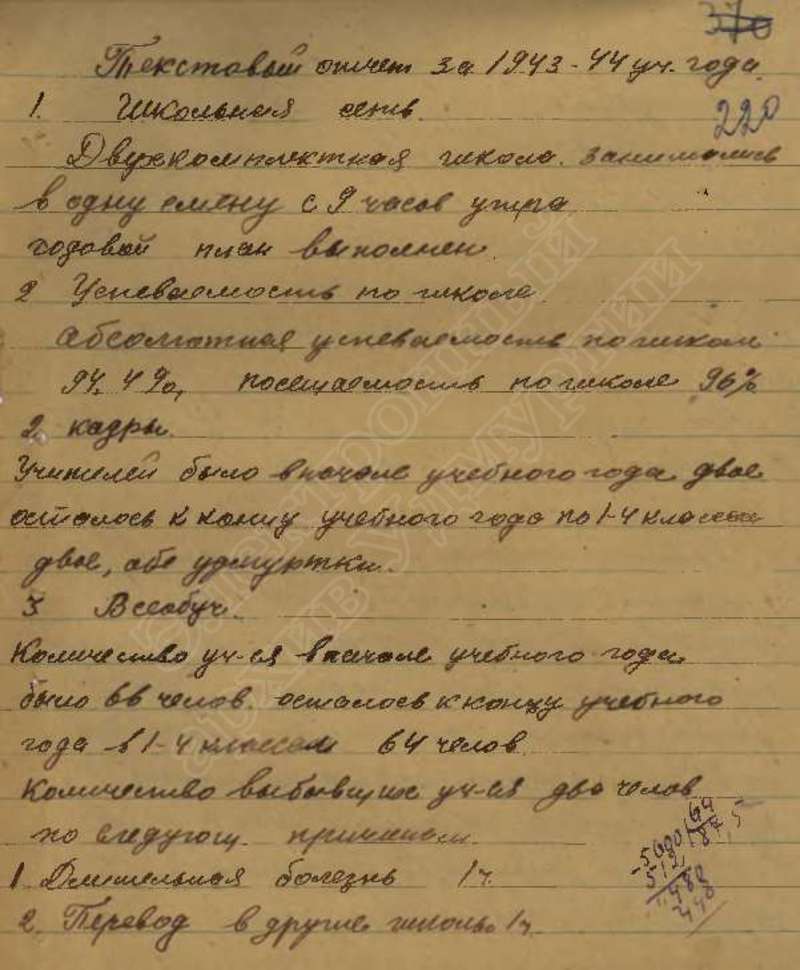 370
Текстовый отчет за 1943-44 уч. года.
220
1. Школьная сеть.
Двухкомплектная школа. занимались
в одну смену с 9 часов утра
годовой план выполнен.
2 Успеваемость по школе.
Абсолютная успеваемость по школе
94,4%, посещаемость по школе 96%
2. кадры.
Учителей было вначале учебного года двое
осталось к концу учебного года по 1-4 классам
двое, обе удмуртки.
3 Всеобуч.
Количество уч-ся вначале учебного года
было 66 челов. осталось к концу учебного
года в 1-4 классах 64 челов.
Количество выбывших уч-ся два челов
по следующ. причинам.
1 Длительная болезнь 1ч.
2. Перевод в другие школы 1ч.